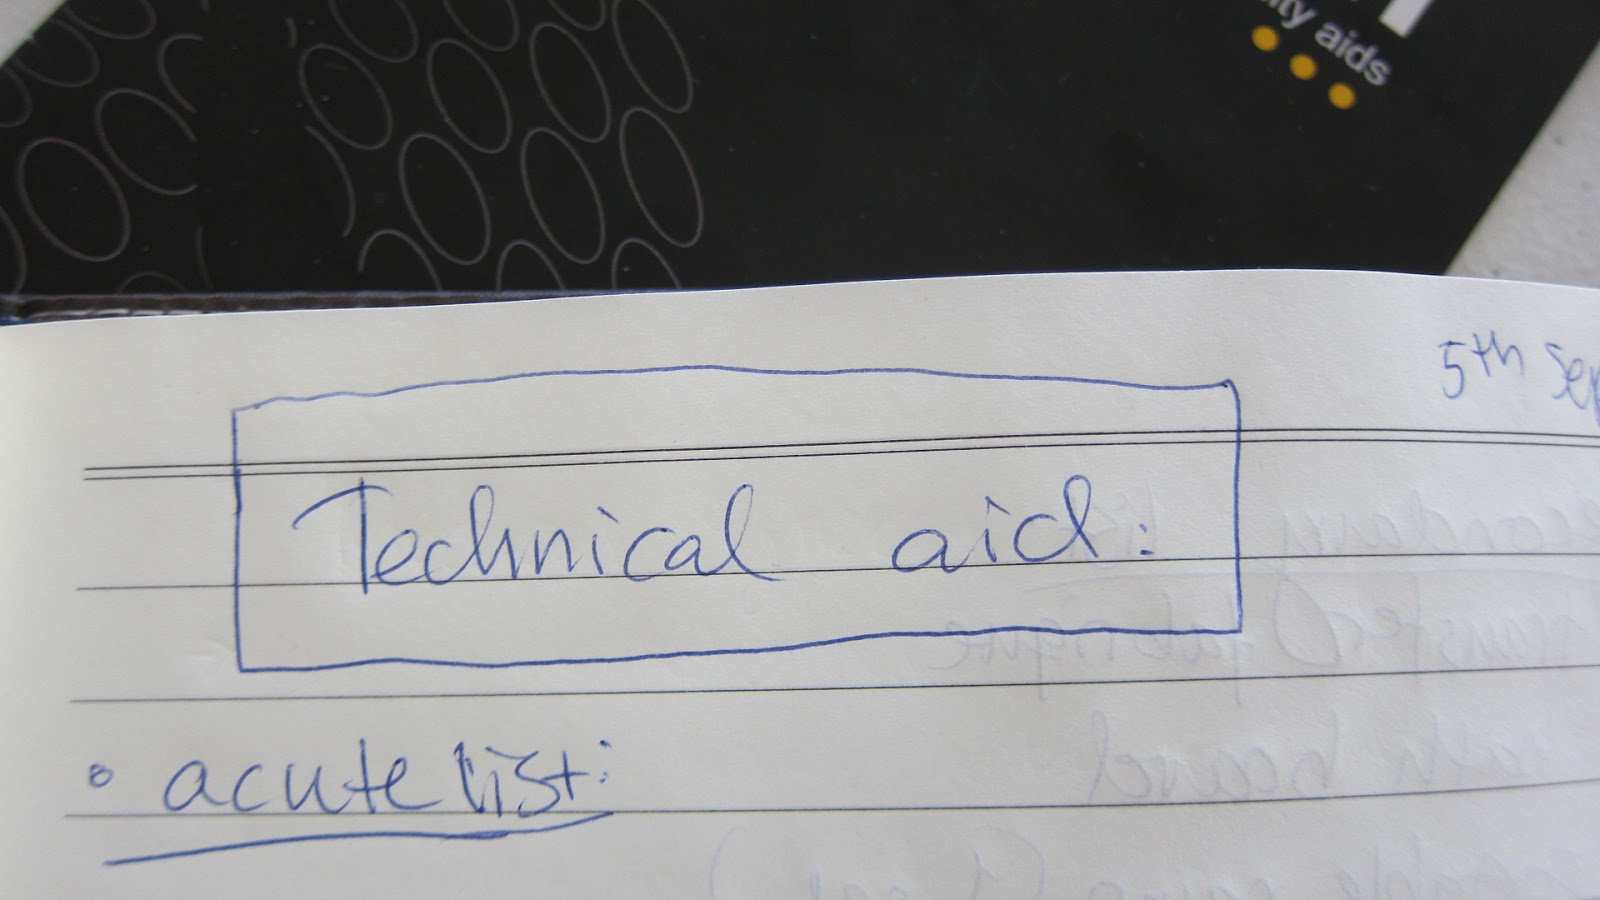 aids
5th Sep
Technical aid:
• acute list: